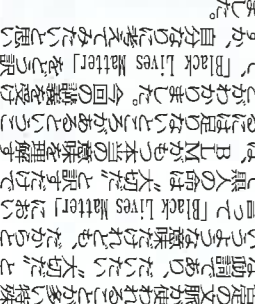 定の文脈で使われることが多い特殊
動詞であり、だいたい“大切だ”と
いうような意味だけれども、だからと
言って「Black Lives Matter」におい
黒人の命は“大切だ”と訳すだけで
は、BLMがもつ本当の意味を理解す
るには足りないところがあるというこ
とがわかりました。今回の講義を受け
、「Black Lives Matter」をどう訳
すか、自分なりに考えてみたいと思い
ました。